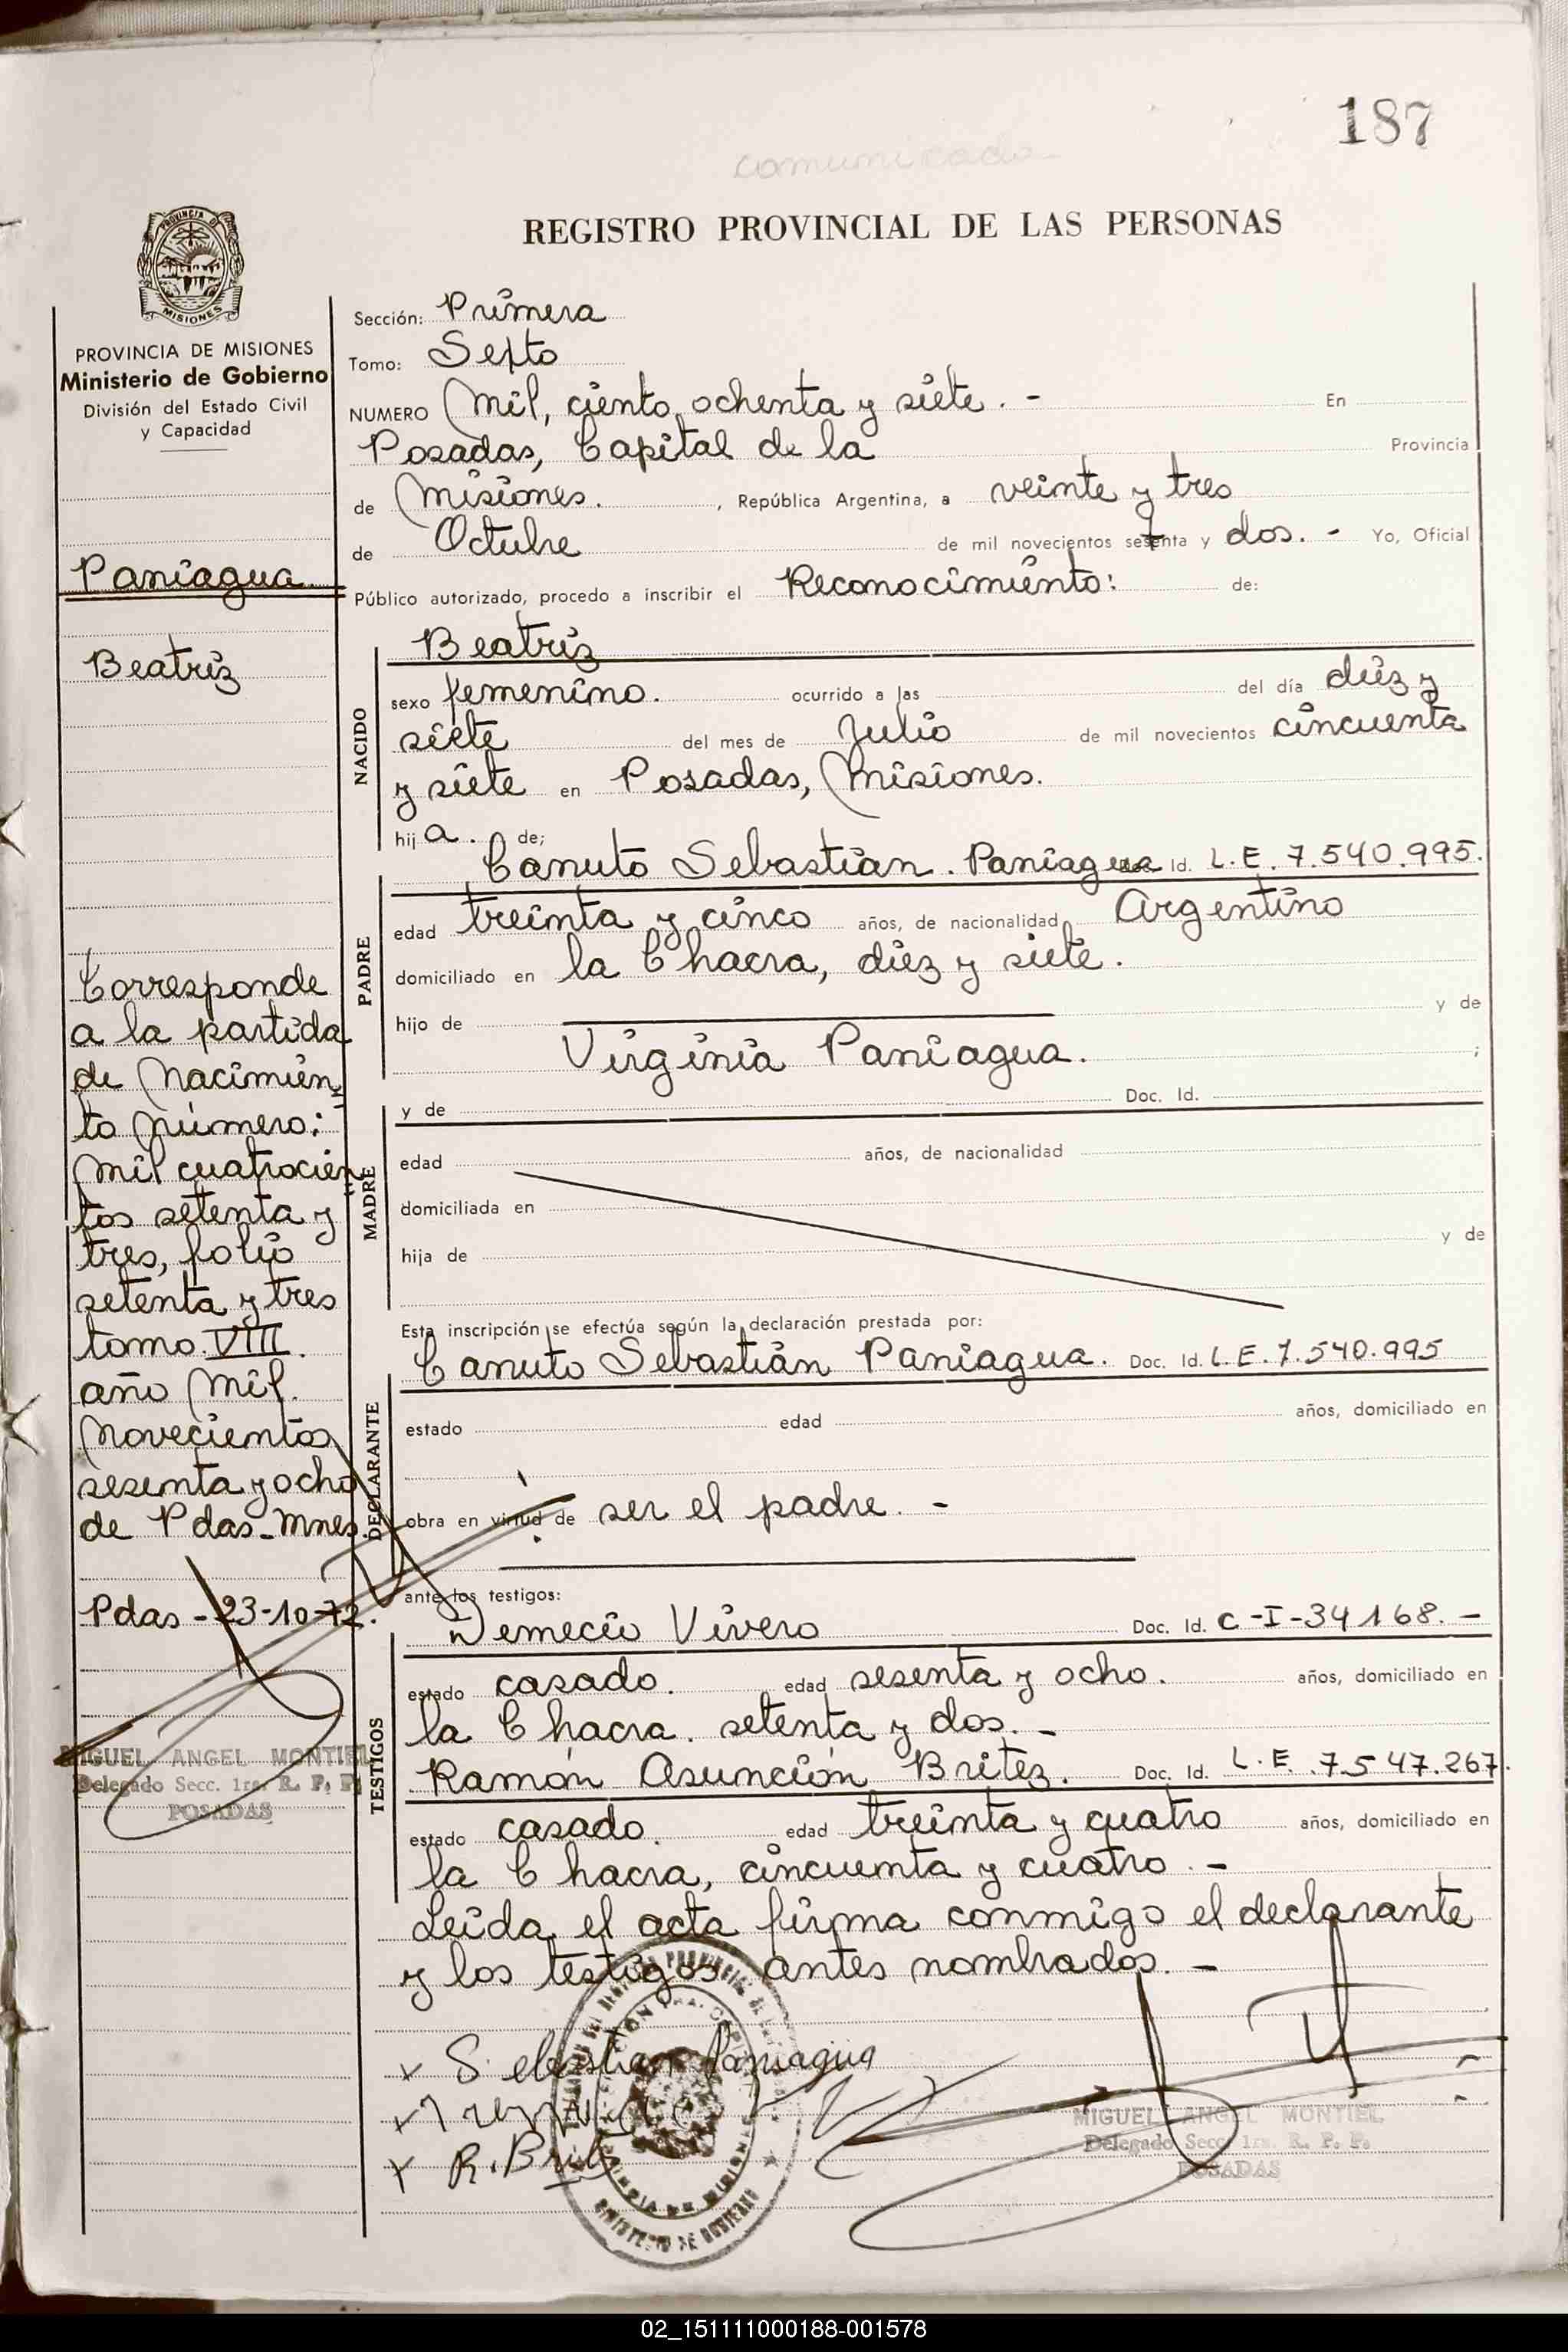 187
comunicado
REGISTRO PROVINCIAL DE LAS PERSONAS
PROVINCIA DE MISIONES
PROVINCIA DE MISIONES
Ministerio de Gobierno
División del Estado Civil
y Capacidad
Paniagua
Beatriz
Corresponde
a la partida
de Nacimien
to Número:
Mil cuatrocien
tos setenta y
tres, folio
setenta y tres
tomo VIII.
año Mil.
Novecientos
sesenta y ocho
de Pdas-Mnes.
Pdas-23-10-72.
MIGUEL ANGEL MONTIEL
Delegado Secc. 1ra. R. P. P.
POSADAS
Sección: Primera
Tomo: Sexto
NUMERO Mil, ciento, ochenta y siete. - En
Posadas, Capital de la Provincia
de Misiones. , República Argentina, a veinte y tres
de Octubre de mil novecientos setenta y dos. - Yo, Oficial
Público autorizado, procedo a inscribir el Reconocimiento: de:
NACIDO
Beatriz
sexo femenino. ocurrido a las del día diez y
siete del mes de Julio de mil novecientos cincuenta
y siete en Posadas, Misiones.
hij a. de;
PADRE
Canuto Sebastian. Paniagua Id. L.E. 7.540.995.
edad treinta y cinco años, de nacionalidad Argentino
domiciliado en la Chacra, diez y siete.
hijo de y de
Virginia Paniagua. ;
MADRE
y de Doc. Id.
edad años, de nacionalidad
domiciliada en
hija de y de
Esta inscripción se efectúa según la declaración prestada por:
DECLARANTE
Canuto Sebastián Paniagua. Doc. Id. L.E. 7.540.995
estado edad años, domiciliado en
obra en virtud de ser el padre. -
ante los testigos:
TESTIGOS
Demecio Vivero Doc. Id. C-I-34168. -
estado casado. edad sesenta y ocho. años, domiciliado en
la Chacra. setenta y dos. -
Ramón Asunción Britez. Doc. Id. L.E. 7.547.267.
estado casado. edad treinta y cuatro años, domiciliado en
la Chacra, cincuenta y cuatro. -
Leida el acta firma conmigo el declarante
y los testigos antes nombrados. -
Paniagua
R. Brit
MINISTERIO DE GOBIERNO
MIGUEL ANGEL MONTIEL
Delegado Secc. 1ra. R. P. P.
POSADAS
02_151111000188-001578